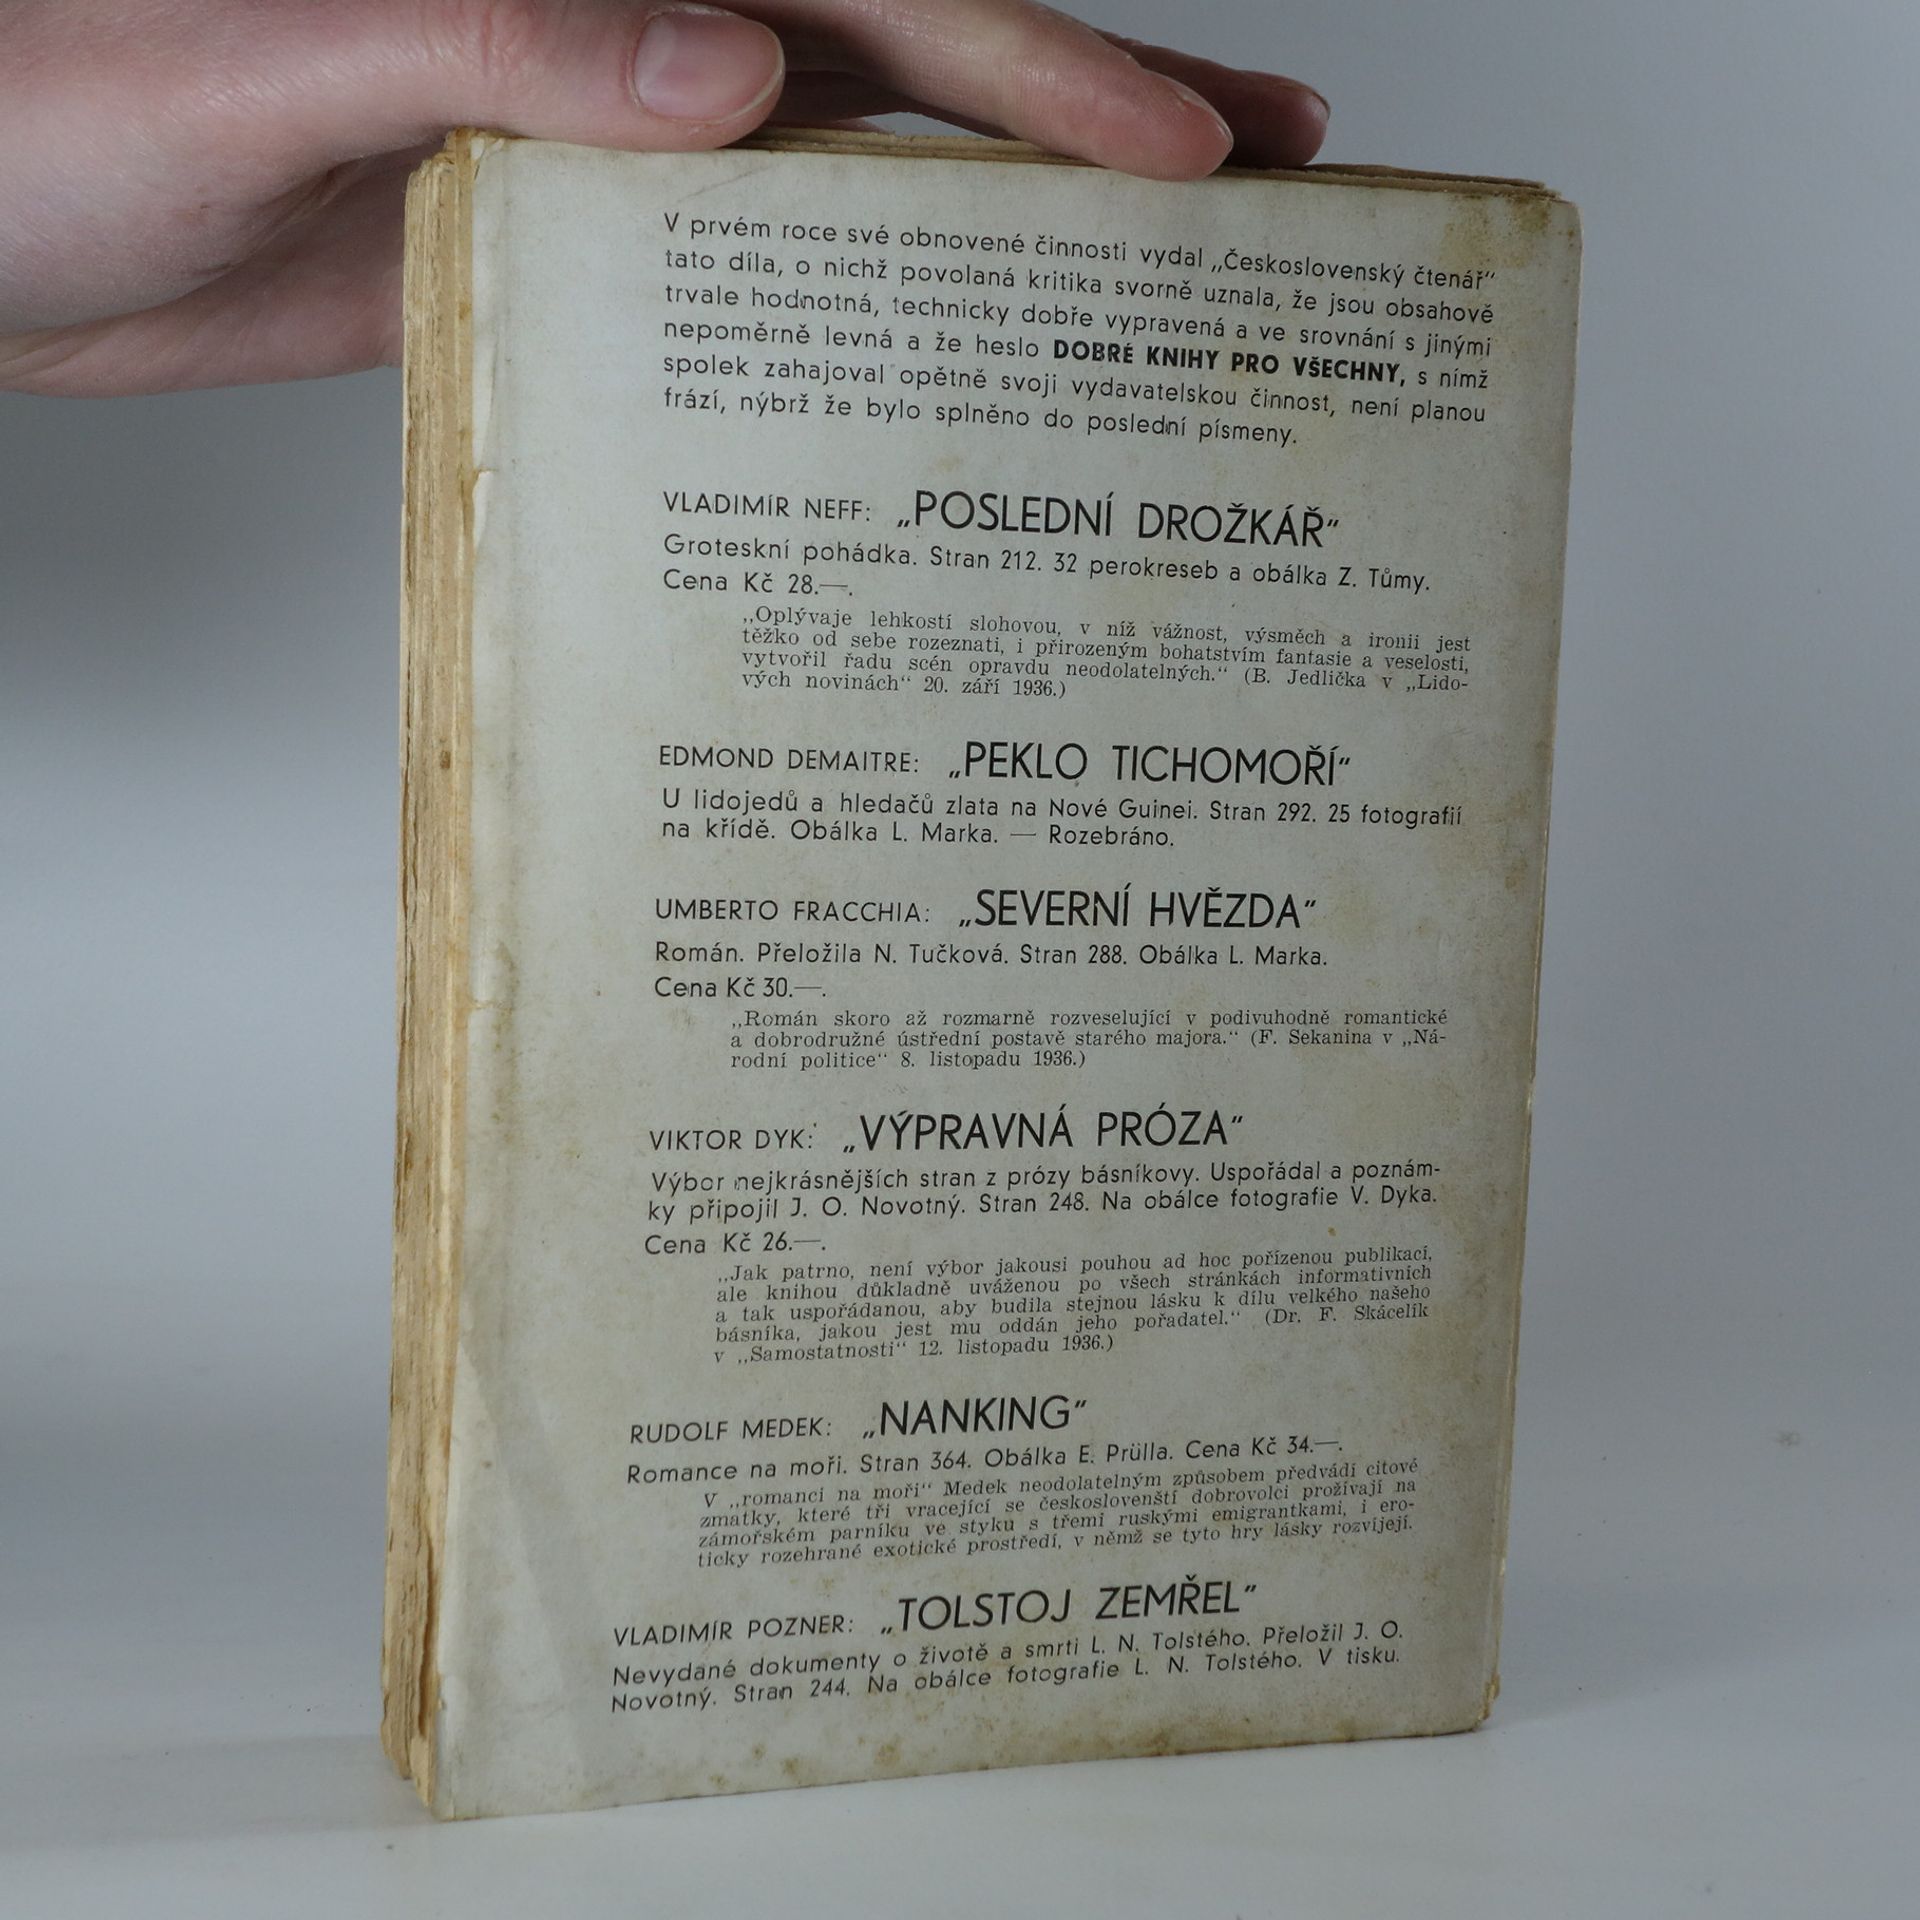 V prvém roce své obnovené činnosti vydal „Československý čtenář“
tato díla, o nichž povolaná kritika svorně uznala, že jsou obsahově
trvale hodnotná, technicky dobře vypravená a ve srovnání s jinými
nepoměrně levná a že heslo DOBRÉ KNIHY PRO VŠECHNY, s nímž
spolek zahajoval opětně svoji vydavatelskou činnost, není planou
frází, nýbrž že bylo splněno do poslední písmeny.
VLADIMÍR NEFF: „POSLEDNÍ DROŽKÁŘ“
Groteskní pohádka. Stran 212. 32 perokreseb a obálka Z. Tůmy.
Cena Kč 28.—.
„Oplývaje lehkostí slohovou, v níž vážnost, výsměch a ironii jest
těžko od sebe rozeznati, i přirozeným bohatstvím fantasie a veselosti,
vytvořil řadu scén opravdu neodolatelných.“ (B. Jedlička v „Lido-
vých novinách“ 20. září 1936.)
EDMOND DEMAITRE: „PEKLO TICHOMOŘÍ“
U lidojedů a hledačů zlata na Nové Guinei. Stran 292. 25 fotografií
na křídě. Obálka L. Marka. — Rozebráno.
UMBERTO FRACCHIA: „SEVERNÍ HVĚZDA“
Román. Přeložila N. Tučková. Stran 288. Obálka L. Marka.
Cena Kč 30.—.
„Román skoro až rozmarně rozveselující v podivuhodně romantické
a dobrodružné ústřední postavě starého majora.“ (F. Sekanina v „Ná-
rodní politice“ 8. listopadu 1936.)
VIKTOR DYK: „VÝPRAVNÁ PRÓZA“
Výbor nejkrásnějších stran z prózy básníkovy. Uspořádal a poznám-
ky připojil J. O. Novotný. Stran 248. Na obálce fotografie V. Dyka.
Cena Kč 26.—.
„Jak patrno, není výbor jakousi pouhou ad hoc pořízenou publikací,
ale knihou důkladně uváženou po všech stránkách informativních
a tak uspořádanou, aby budila stejnou lásku k dílu velkého našeho
básníka, jakou jest mu oddán jeho pořadatel.“ (Dr. F. Skácelík
v „Samostatnosti“ 12. listopadu 1936.)
RUDOLF MEDEK: „NANKING“
Romance na moři. Stran 364. Obálka E. Prülla. Cena Kč 34.—.
V „romanci na moři“ Medek neodolatelným způsobem předvádí citové
zmatky, které tři vracející se českoslovenští dobrovolci prožívají na
zámořském parníku ve styku s třemi ruskými emigrantkami, i ero-
ticky rozehrané exotické prostředí, v němž se tyto hry lásky rozvíjejí.
VLADIMÍR POZNER: „TOLSTOJ ZEMŘEL“
Nevydané dokumenty o životě a smrti L. N. Tolstého. Přeložil J. O.
Novotný. Stran 244. Na obálce fotografie L. N. Tolstého. V tisku.